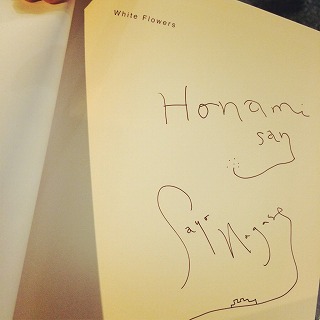 White Flowers
Honami
san
Sayo Nagase